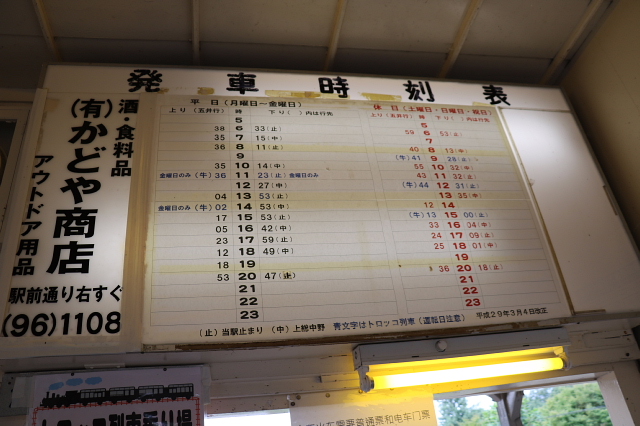 発車時刻表
(有)かどや商店
酒・食料品
アウトドア用品
駅前通り右すぐ
(96)1108
平日(月曜日〜金曜日)
上り(五井行) 時 下り( )内は行先
5
38 6 33(止)
35 7 15(中)
36 8 11(止)
9
35 10 14(中)
金曜日のみ (牛)36 11 23(止)金曜日のみ
12 27(中)
04 13 53(止)
金曜日のみ (牛)02 14 53(中)
17 15 53(止)
05 16 42(中)
23 17 59(止)
12 18 49(中)
18 19
53 20 47(止)
21
22
23
休日(土曜日・日曜日・祝日)
上り(五井行) 時 下り( )内は行先
5
59 6 53(止)
7
40 8 13(中)
(牛)41 9 28(止)
55 10 32(中)
43 11 32(止)
(牛)44 12 31(止)
13 35(中)
12 14
(牛)13 15 00(止)
33 16 04(中)
24 17 09(止)
25 18 01(中)
19
36 20 18(止)
21
22
23
(止)当駅止まり (中)上総中野 青文字はトロッコ列車(運転日注意) 平成29年3月4日改正
トロッコ列車乗り場
普通票和电车门票